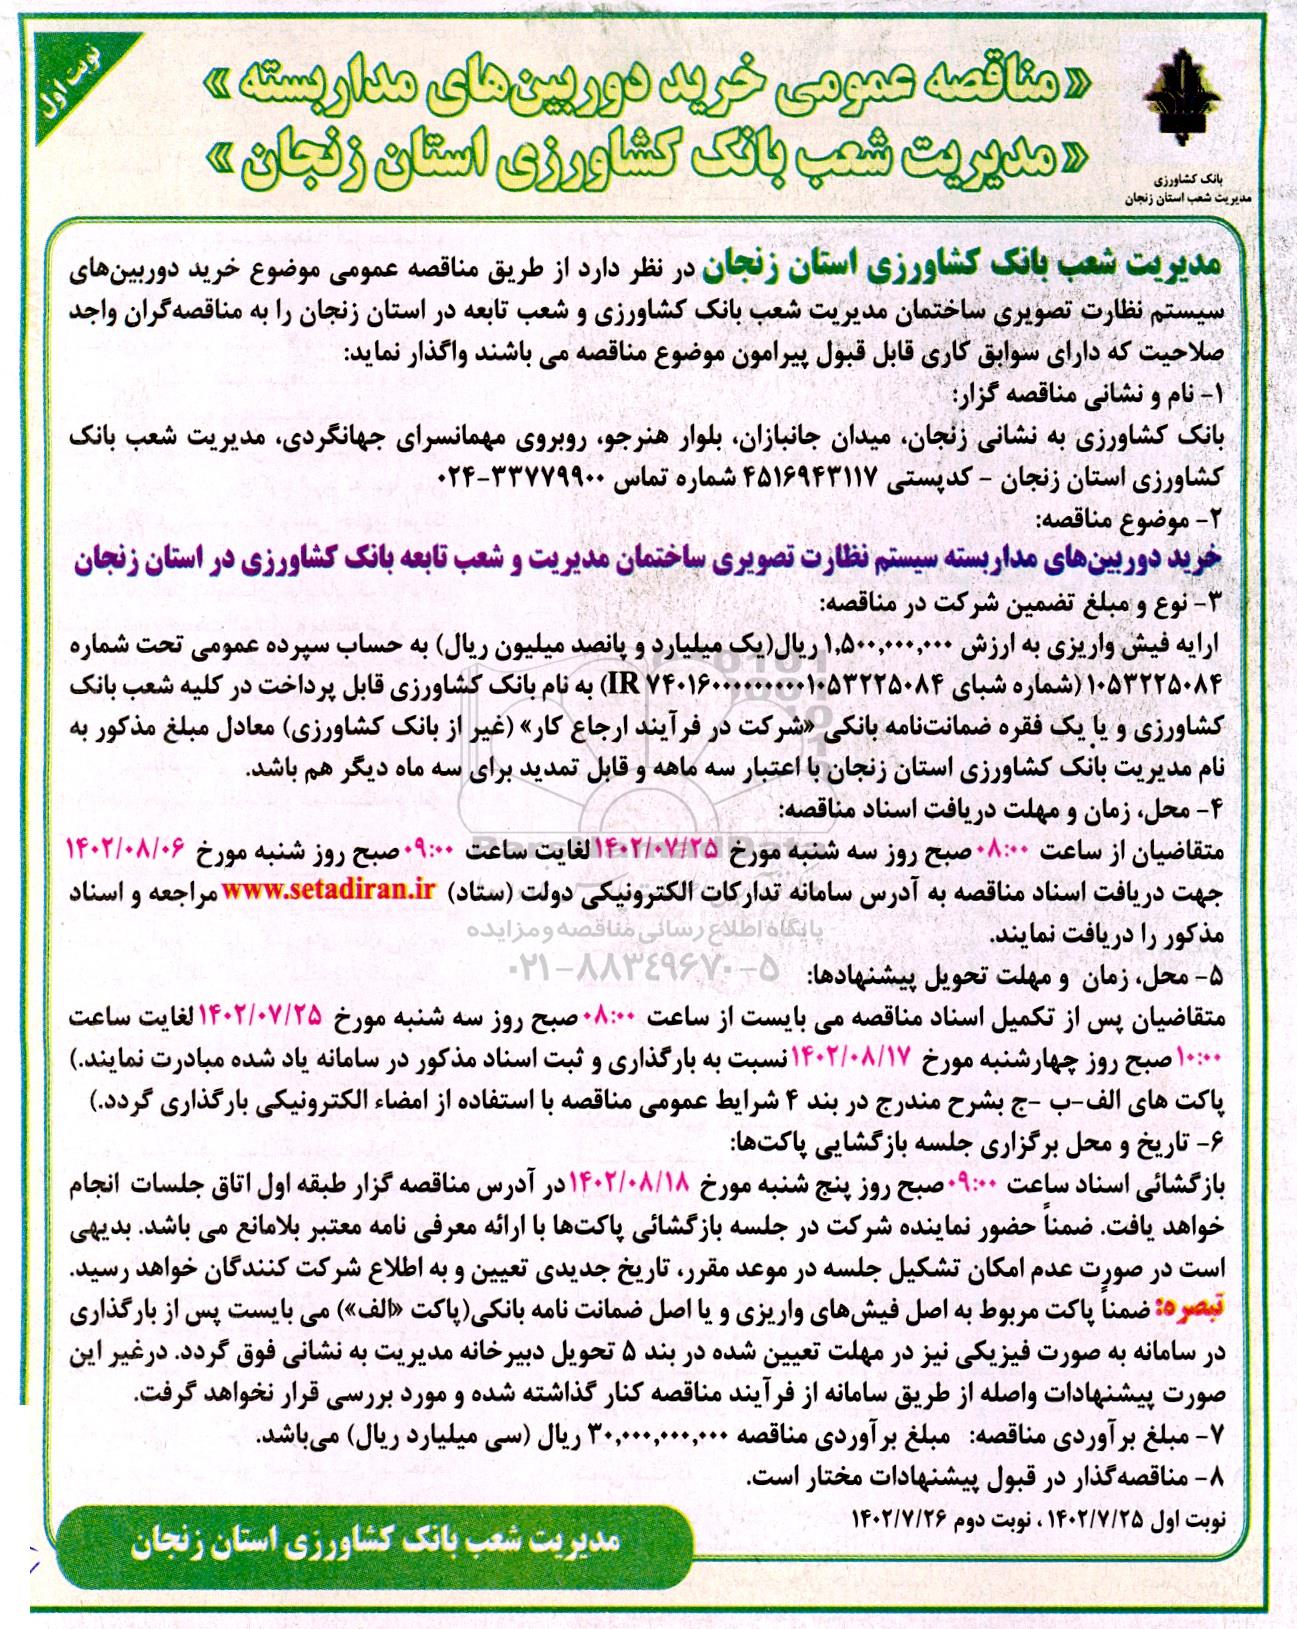 نوبت اول
« مناقصه عمومی خرید دوربین‌های مداربسته »
« مدیریت شعب بانک کشاورزی استان زنجان »
بانک کشاورزی
مدیریت شعب استان زنجان
مدیریت شعب بانک کشاورزی استان زنجان در نظر دارد از طریق مناقصه عمومی موضوع خرید دوربین‌های
سیستم نظارت تصویری ساختمان مدیریت شعب بانک کشاورزی و شعب تابعه در استان زنجان را به مناقصه‌گران واجد
صلاحیت که دارای سوابق کاری قابل قبول پیرامون موضوع مناقصه می باشند واگذار نماید:
۱- نام و نشانی مناقصه گزار:
بانک کشاورزی به نشانی زنجان، میدان جانبازان، بلوار هنرجو، روبروی مهمانسرای جهانگردی، مدیریت شعب بانک
کشاورزی استان زنجان - کدپستی ۴۵۱۶۹۴۳۱۱۷ شماره تماس ۳۳۷۷۹۹۰۰-۰۲۴
۲- موضوع مناقصه:
خرید دوربین‌های مداربسته سیستم نظارت تصویری ساختمان مدیریت و شعب تابعه بانک کشاورزی در استان زنجان
۳- نوع و مبلغ تضمین شرکت در مناقصه:
ارایه فیش واریزی به ارزش ۱,۵۰۰,۰۰۰,۰۰۰ ریال(یک میلیارد و پانصد میلیون ریال) به حساب سپرده عمومی تحت شماره
۱۰۵۳۲۲۵۰۸۴ (شماره شبای IR ۷۴۰۱۶۰۰۰۰۰۰۰۰۰۰۱۰۵۳۲۲۵۰۸۴) به نام بانک کشاورزی قابل پرداخت در کلیه شعب بانک
کشاورزی و یا یک فقره ضمانت‌نامه بانکی «شرکت در فرآیند ارجاع کار» (غیر از بانک کشاورزی) معادل مبلغ مذکور به
نام مدیریت بانک کشاورزی استان زنجان با اعتبار سه ماهه و قابل تمدید برای سه ماه دیگر هم باشد.
۴- محل، زمان و مهلت دریافت اسناد مناقصه:
متقاضیان از ساعت ۰۸:۰۰ صبح روز سه شنبه مورخ ۱۴۰۲/۰۷/۲۵ لغایت ساعت ۰۹:۰۰ صبح روز شنبه مورخ ۱۴۰۲/۰۸/۰۶
جهت دریافت اسناد مناقصه به آدرس سامانه تدارکات الکترونیکی دولت (ستاد) www.setadiran.ir مراجعه و اسناد
مذکور را دریافت نمایند.
پایگاه اطلاع رسانی مناقصه و مزایده
۰۲۱-۸۸۳۴۹۶۷۰-۵
۵- محل، زمان و مهلت تحویل پیشنهادها:
متقاضیان پس از تکمیل اسناد مناقصه می بایست از ساعت ۰۸:۰۰ صبح روز سه شنبه مورخ ۱۴۰۲/۰۷/۲۵ لغایت ساعت
۱۰:۰۰ صبح روز چهارشنبه مورخ ۱۴۰۲/۰۸/۱۷ نسبت به بارگذاری و ثبت اسناد مذکور در سامانه یاد شده مبادرت نمایند.)
پاکت های الف-ب -ج بشرح مندرج در بند ۴ شرایط عمومی مناقصه با استفاده از امضاء الکترونیکی بارگذاری گردد.)
۶- تاریخ و محل برگزاری جلسه بازگشایی پاکت‌ها:
بازگشائی اسناد ساعت ۰۹:۰۰ صبح روز پنج شنبه مورخ ۱۴۰۲/۰۸/۱۸ در آدرس مناقصه گزار طبقه اول اتاق جلسات انجام
خواهد یافت. ضمناً حضور نماینده شرکت در جلسه بازگشائی پاکت‌ها با ارائه معرفی نامه معتبر بلامانع می باشد. بدیهی
است در صورت عدم امکان تشکیل جلسه در موعد مقرر، تاریخ جدیدی تعیین و به اطلاع شرکت کنندگان خواهد رسید.
تبصره: ضمناً پاکت مربوط به اصل فیش‌های واریزی و یا اصل ضمانت نامه بانکی(پاکت «الف») می بایست پس از بارگذاری
در سامانه به صورت فیزیکی نیز در مهلت تعیین شده در بند ۵ تحویل دبیرخانه مدیریت به نشانی فوق گردد. درغیر این
صورت پیشنهادات واصله از طریق سامانه از فرآیند مناقصه کنار گذاشته شده و مورد بررسی قرار نخواهد گرفت.
۷- مبلغ برآوردی مناقصه: مبلغ برآوردی مناقصه ۳۰,۰۰۰,۰۰۰,۰۰۰ ریال (سی میلیارد ریال) می‌باشد.
۸- مناقصه‌گذار در قبول پیشنهادات مختار است.
نوبت اول ۱۴۰۲/۷/۲۵ ، نوبت دوم ۱۴۰۲/۷/۲۶
مدیریت شعب بانک کشاورزی استان زنجان